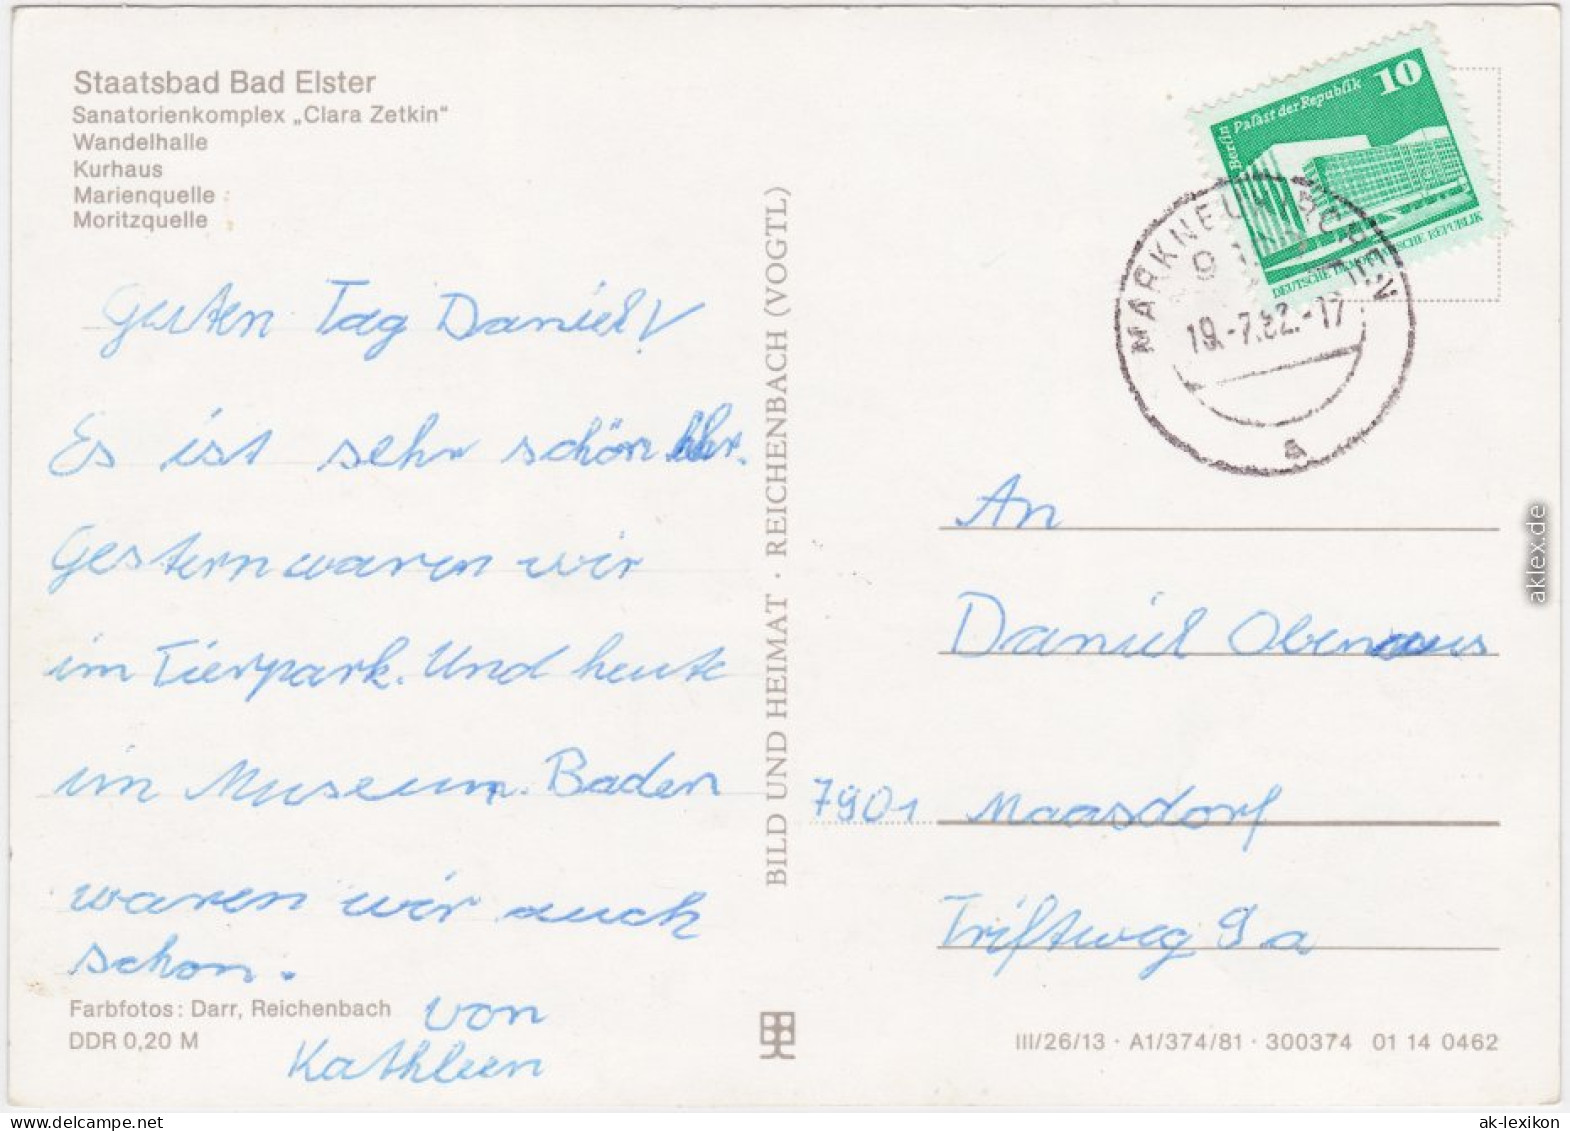 Staatsbad Bad Elster
Sanatorienkomplex „Clara Zetkin“
Wandelhalle
Kurhaus
Marienquelle
Moritzquelle
Guten Tag Daniel!
Es ist sehr schön hier.
Gestern waren wir
im Tierpark. Und heute
im Museum. Baden
waren wir auch
schon.
von
Kathleen
Farbfotos: Darr, Reichenbach
DDR 0,20 M
BILD UND HEIMAT · REICHENBACH (VOGTL)
10
Berlin Palast der Republik
DEUTSCHE DEMOKRATISCHE REPUBLIK
MARKNEUKIRCHEN
19.-7.82.-17
a
An
Daniel Obenaus
7901 Maasdorf
Triftweg 9a
III/26/13 · A1/374/81 · 300374 01 14 0462
aklex.de
ak-lexikon